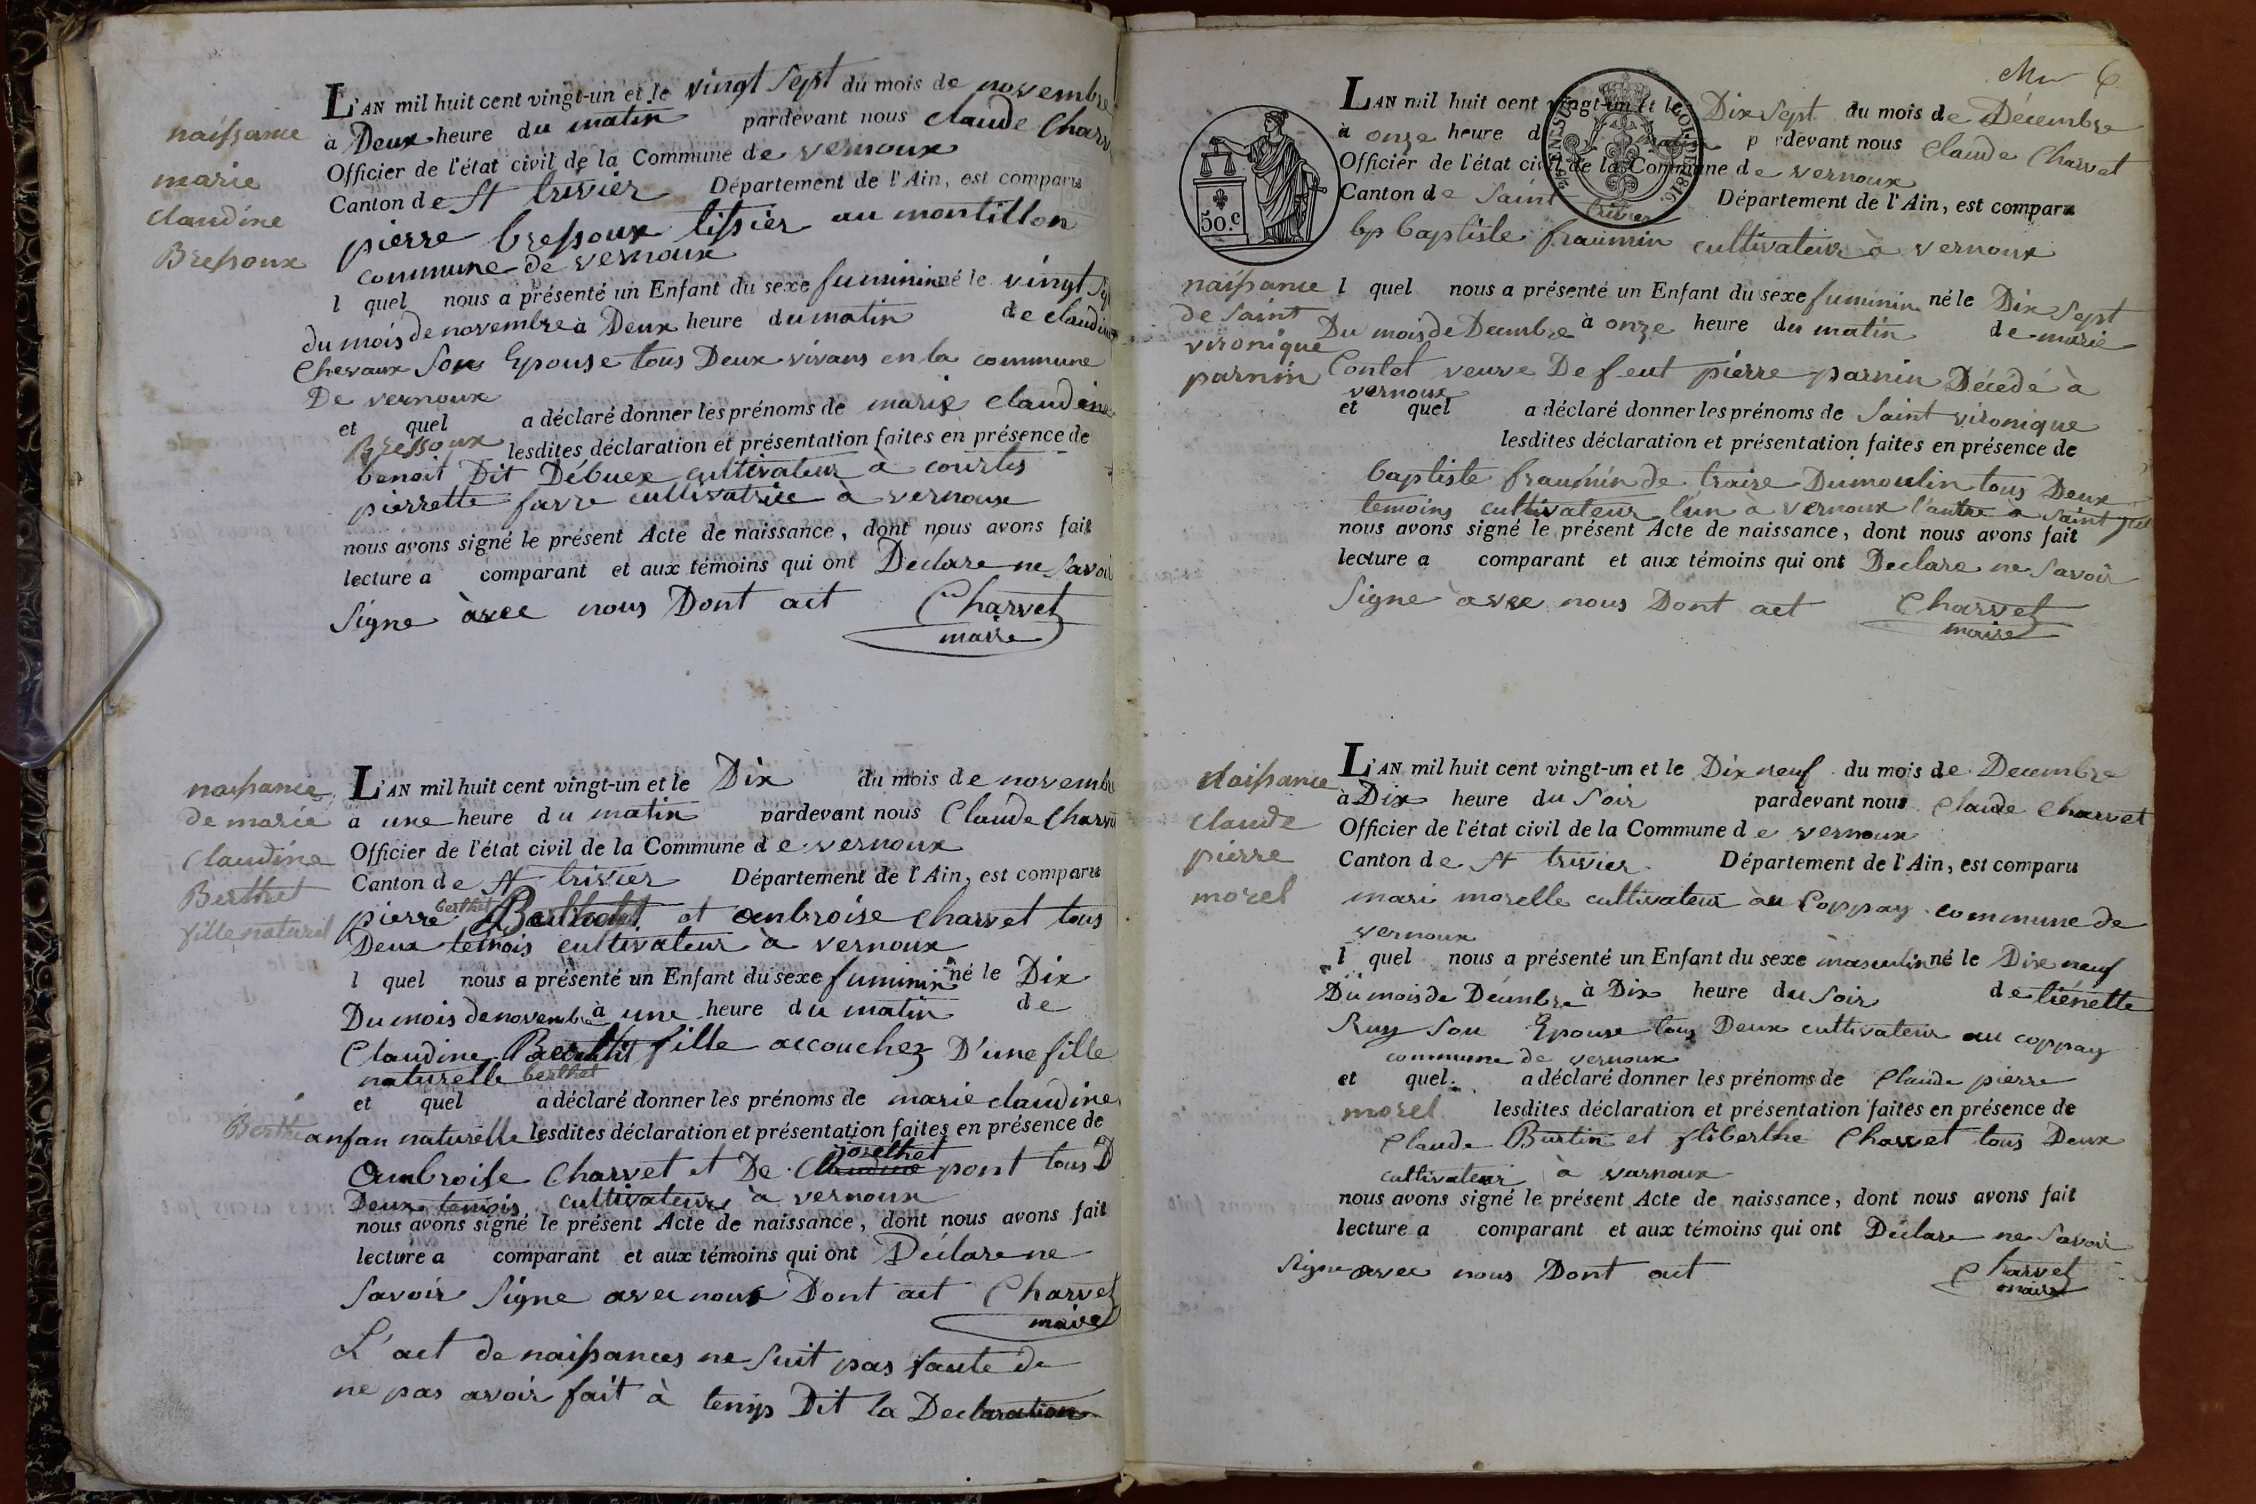 naissance
marie
claudine
Bressoux
L'AN mil huit cent vingt-un et le vingt sept du mois de novembre
à Deux heure du matin pardevant nous claude Charv
Officier de l'état civil de la Commune de vernoux
Canton de St trivier Département de l'Ain, est comparu
pierre bressoux tissier au montillon
commune de vernoux
l quel nous a présenté un Enfant du sexe fuminin né le vingt sep
du mois de novembre à Deux heure du matin de claudine
Chevaux Son Epouse tous Deux vivans en la commune
De vernoux
et quel a déclaré donner les prénoms de marie claudine
Bressoux lesdites déclaration et présentation faites en présence de
benoit Dit Débuex cultivateur à courtes
pierrette favre cultivatrice à vernoux
nous avons signé le présent Acte de naissance, dont nous avons fait
lecture a comparant et aux témoins qui ont Declare ne Savoir
Signe avec nous Dont act Charvet
maire
naissance
de marie
Claudine
Berthet
fille naturel
L'AN mil huit cent vingt-un et le Dix du mois de novembre
a une heure du matin pardevant nous Claude Charv
Officier de l'état civil de la Commune de vernoux
Canton de St trivier Département de l'Ain, est comparu
pierre berthet et ambroise charvet tous
Deux temois cultivateur à vernoux
l quel nous a présenté un Enfant du sexe fuminin né le Dix
Du mois de novembre à une heure du matin de
Claudine fille accouchez D'une fille
naturelle berthet
et quel a déclaré donner les prénoms de marie claudine
Berthe anfan naturelle lesdites déclaration et présentation faites en présence de
Ambroise Charvet et De pont tous D
Deux temois cultivateurs à vernoux
nous avons signé le présent Acte de naissance, dont nous avons fait
lecture a comparant et aux témoins qui ont Déclare ne
Savoir Signe avec nous Dont act Charvet
maire
L'act de naissances ne Suit pas faute de
ne pas avoir fait à temps Dit la Declaration
6
50.c
LOI DE 1816.
L'AN mil huit cent vingt-un et le Dix Sept du mois de Décembre
à onze heure d matin pardevant nous Claude Charvet
Officier de l'état civil de la Commune de vernoux
Canton de Saint trivier Département de l'Ain, est comparu
bp baptiste fraumin cultivateur à vernoux
naissance
de Saint
vironique
parnin
l quel nous a présenté un Enfant du sexe fuminin né le Dix Sept
Du mois de Decembre à onze heure du matin de marie
Contet veuve De feut pierre parnin Décédé à
vernoux
et quel a déclaré donner les prénoms de Saint vironique
lesdites déclaration et présentation faites en présence de
baptiste fraumin de traise Dumoulin tous Deux
temoins cultivateur l'un à vernoux l'autre a Saint
nous avons signé le présent Acte de naissance, dont nous avons fait
lecture a comparant et aux témoins qui ont Declare ne Savoir
Signe avec nous Dont act Charvet
maire
Naissance
claude
pierre
morel
L'AN mil huit cent vingt-un et le Dix neuf du mois de Decembre
à Dix heure du Soir pardevant nous Claude Charvet
Officier de l'état civil de la Commune de vernoux
Canton de St trivier Département de l'Ain, est comparu
mari morelle cultivateur au Coppay commune de
vernoux
l quel nous a présenté un Enfant du sexe masculin né le Dix neuf
Du mois de Decembre à Dix heure du Soir de tiénette
Ruy Son Epouse tous Deux cultivateur au coppay
commune de vernoux
et quel a déclaré donner les prénoms de Claude pierre
morel lesdites déclaration et présentation faites en présence de
Claude Burtin et fliberthe Charvet tous Deux
cultivateur à varnoux
nous avons signé le présent Acte de naissance, dont nous avons fait
lecture a comparant et aux témoins qui ont Déclare ne Savoir
Signe avec nous Dont act Charvet
maire